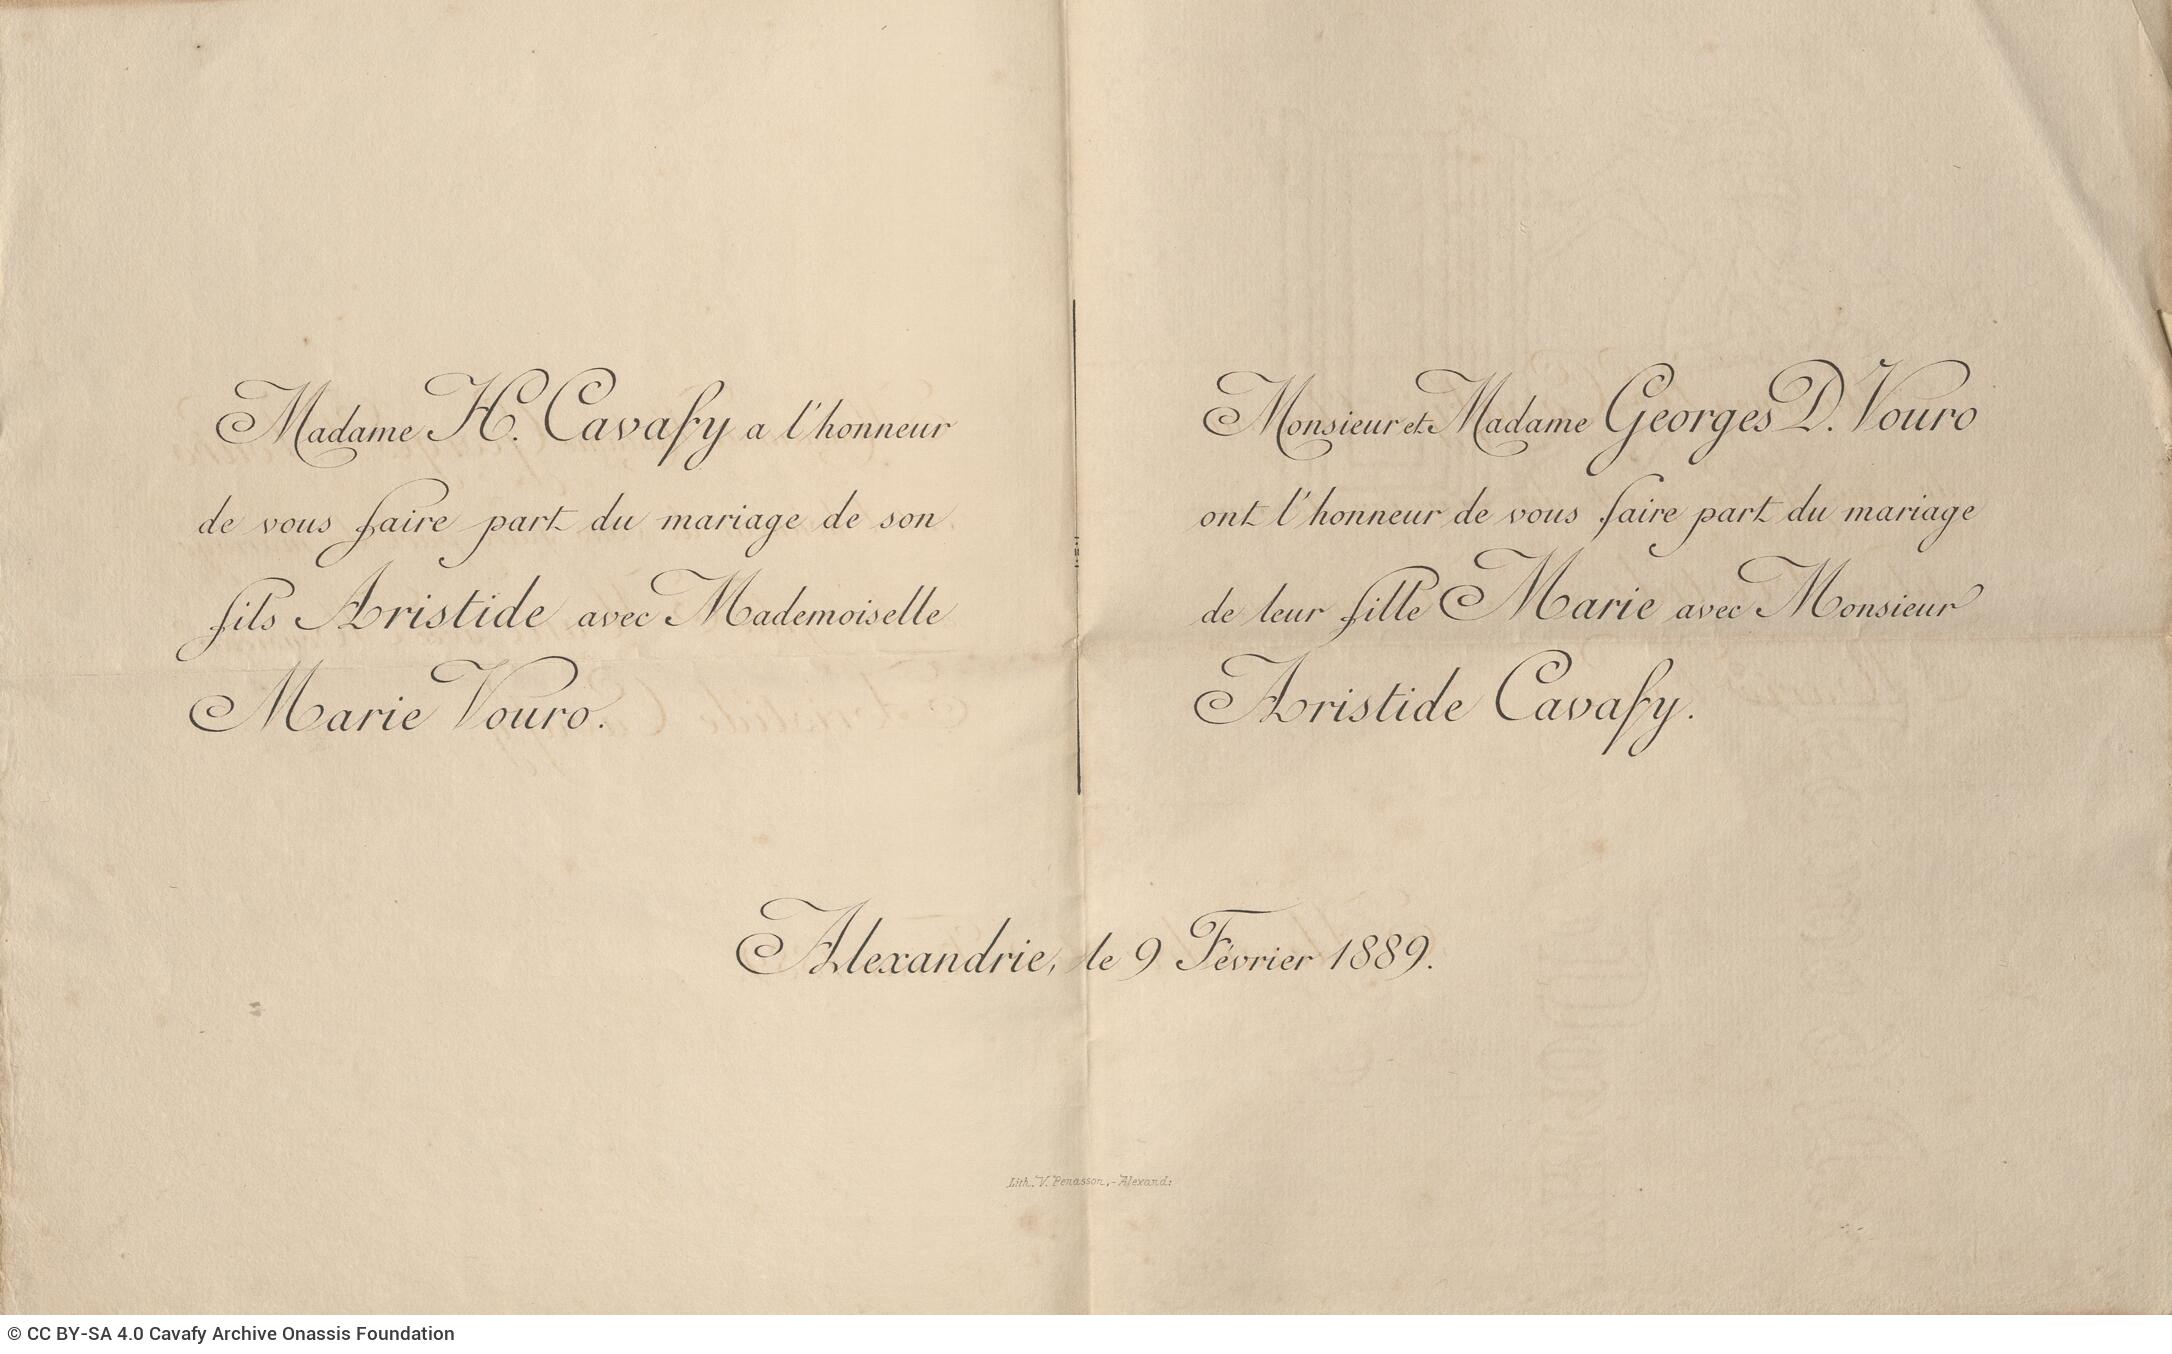 Madame H. Cavafy a l'honneur
de vous faire part du mariage de son
fils Aristide avec Mademoiselle
Marie Vouro.
Monsieur et Madame Georges D. Vouro
ont l'honneur de vous faire part du mariage
de leur fille Marie avec Monsieur
Aristide Cavafy.
Alexandrie, le 9 Février 1889.
Lith. V. Penasson,-Alexand:
© CC BY-SA 4.0 Cavafy Archive Onassis Foundation